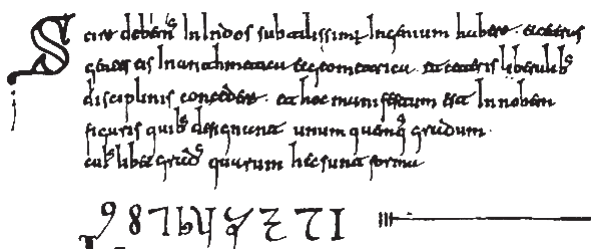 Scire debem⁹ In Indos subtilissimū Ingenium habere· et ceteras
gentes eis In arithmetica et geometrica· et ceteris liberalib⁹
disciplinis concedere· et hoc manifestum est In nobem
figuris quib⁹ designant unum quenq⁹ gradum·
cui⁹libet grad⁹ quarum hec sunt forma
9 8 7 6 5 4 3 2 1